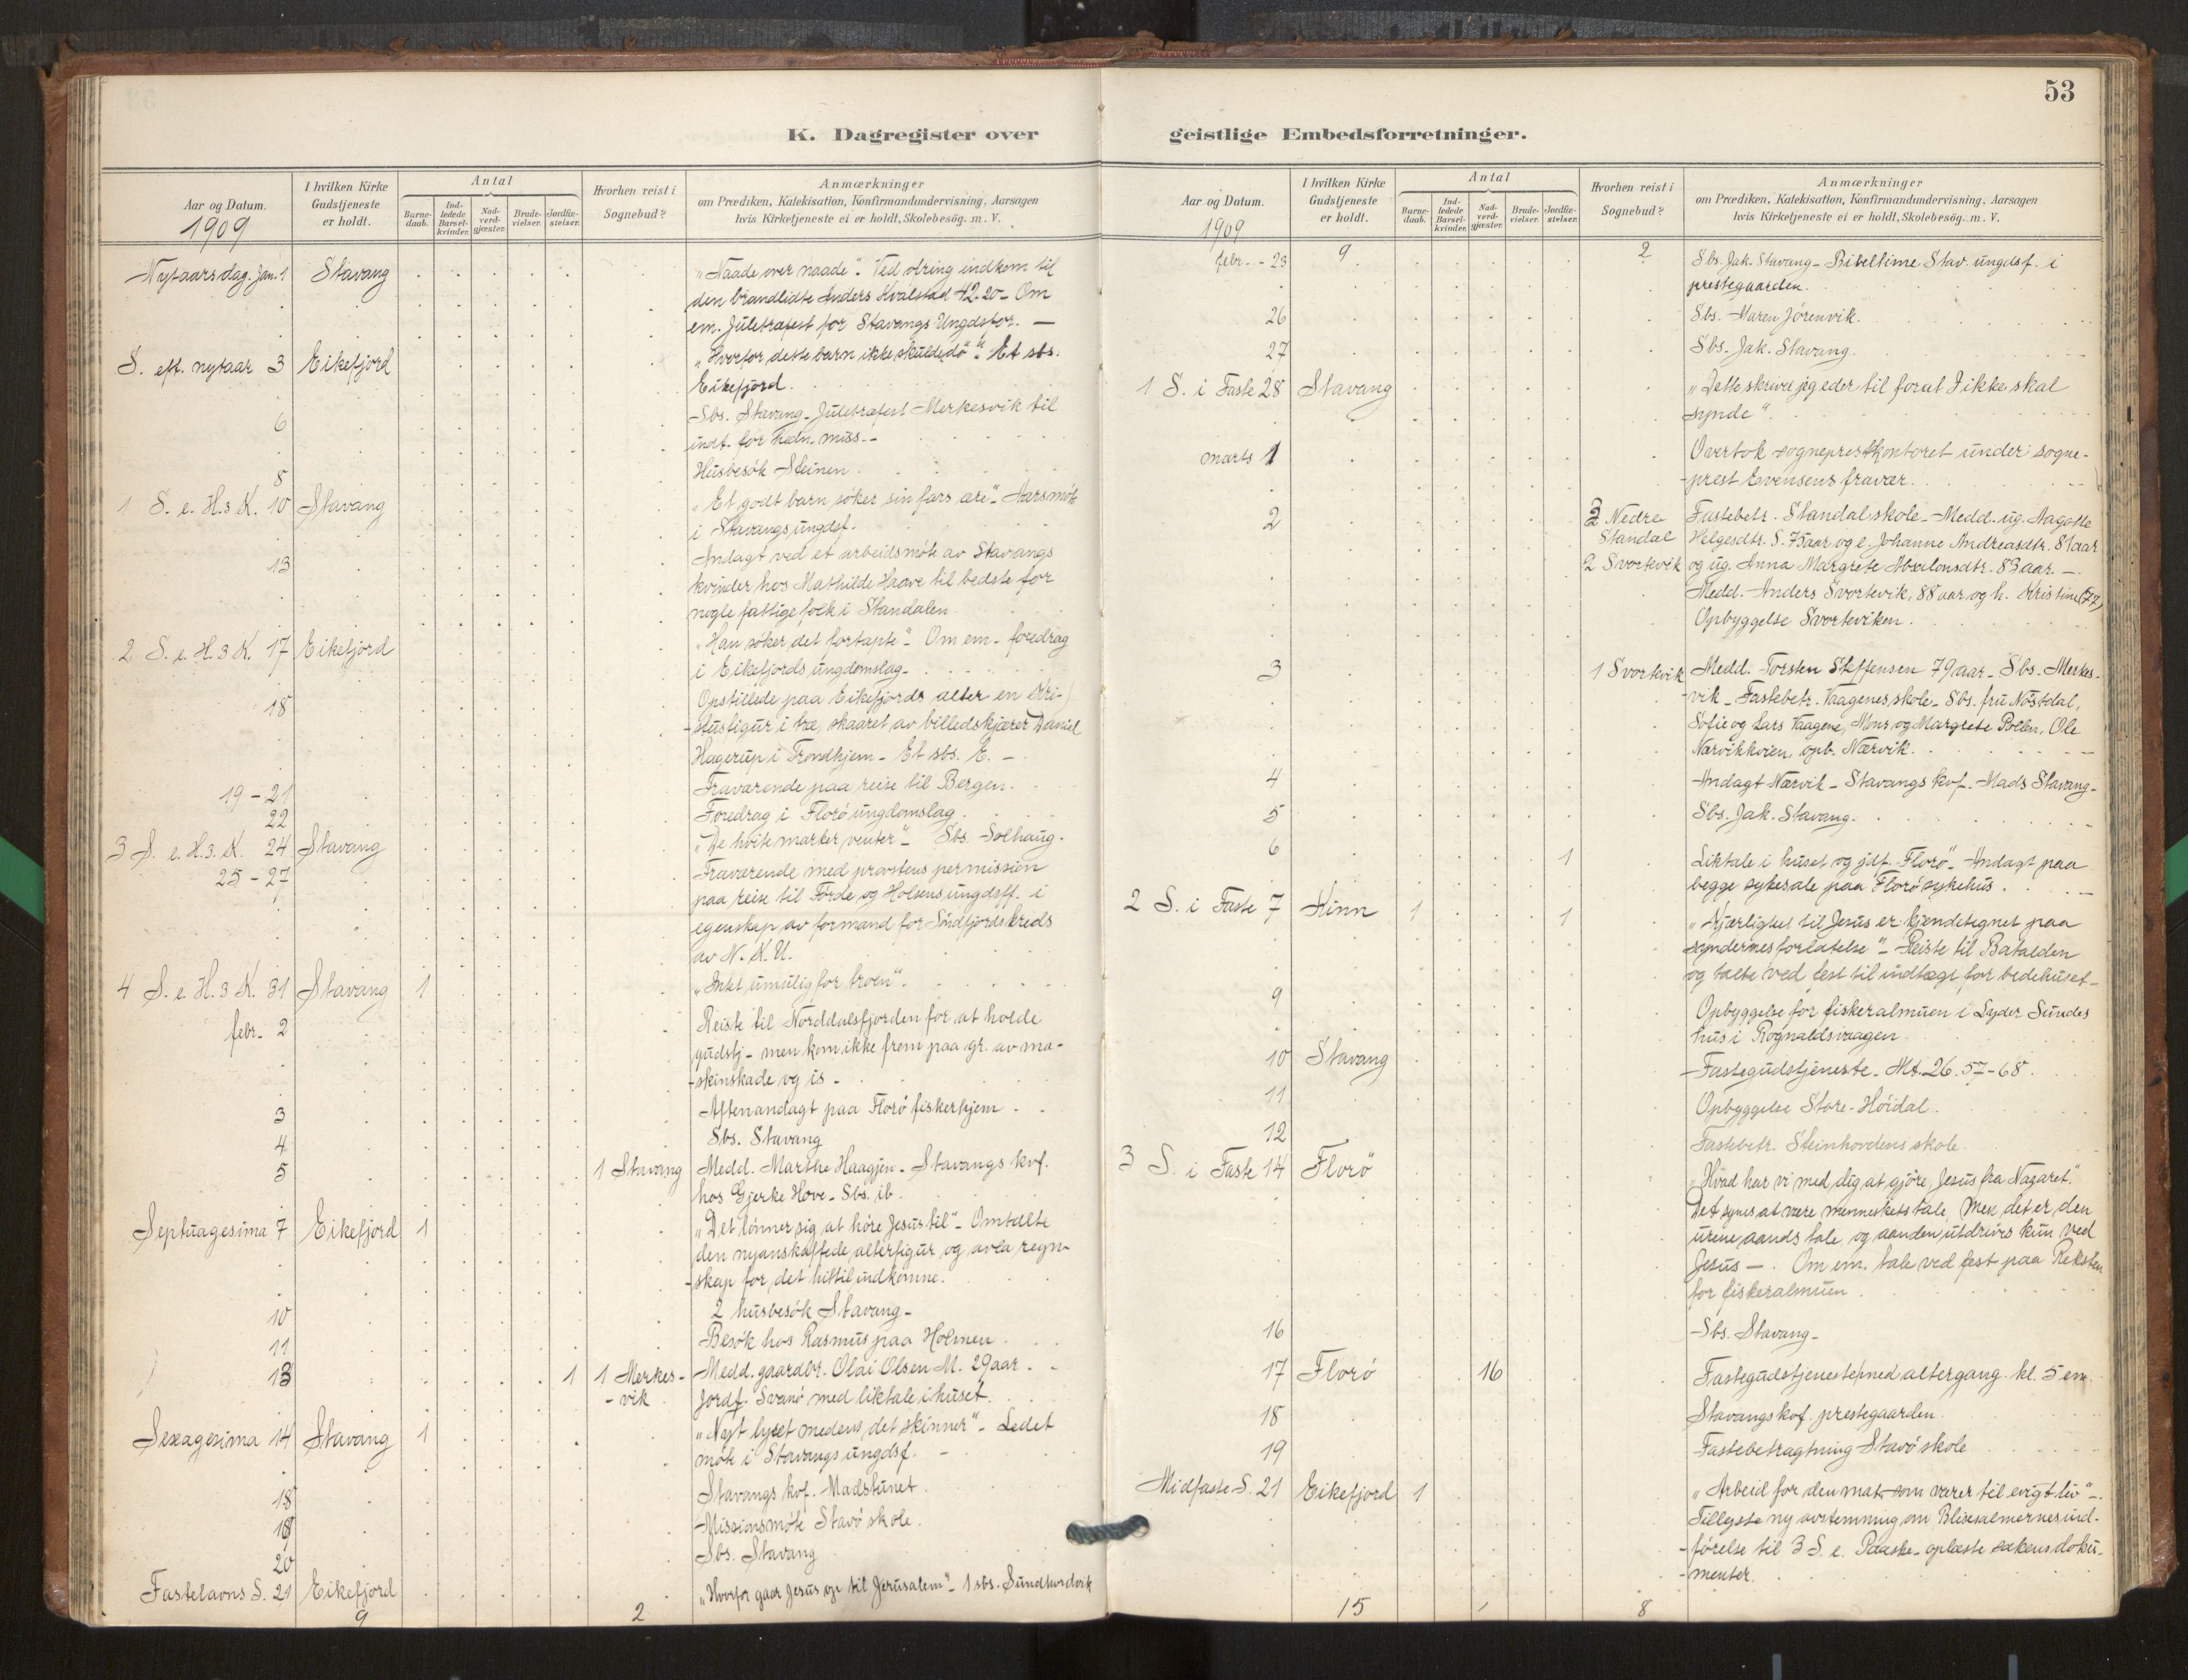 53
K. Dagregister over
geistlige Embedsforretninger.
Aar og Datum.
1909
I hvilken Kirke Gudstjeneste er holdt.
Antal
Barne-daab.
Ind-ledede Barsel-kvinder.
Nad-verd-gjæster.
Brude-vielser.
Jordfæ-stelser.
Hvorhen reist i Sognebud?
Anmærkninger
om Prædiken, Katekisation, Konfirmandundervisning, Aarsagen
hvis Kirketjeneste ei er holdt, Skolebesög. m. V.
Nytaarsdag. Jan. 1 Stavang „Naade over naade“. Ved ofring indkom til
den brandlidte Anders Kvalstad 42.20 – Om
em. Juletræfest for Stavangs Ungdsfor. —
S. eft. nytaar 3 Eikefjord „Hvorfor dette barn ikke skulde dö“. Et sbs.
Eikefjord.
6 Sbs. Stavang – Juletræfest Merkesvik til
indt. for hedn. miss. –
8 Husbesök Steinen.
1 S. e. H. 3 K. 10 Stavang „Et godt barn söker sin fars ære“. Aarsmöte
i Stavangs ungdsf.
13 Andagt ved et arbeidsmöte av Stavangs
kvinder hos Mathilde Haave til bedste for
nogle fattige folk i Standalen.
2 S. e. H. 3 K. 17 Eikefjord „Han söker det fortapte“. Om em. foredrag
i Eikefjords ungdomslag –
18 Opstillede paa Eikefjords alter en Kri-
-stusfigur i træ, skaaret av billedskjærer Daniel
Hagerup i Trondhjem – Et sbs. E. –
19 – 21 Fraværende paa reise til Bergen.
22 Foredrag i Florö ungdomslag.
3 S. e. H. 3. K. 24 Stavang „De hvite marker venter“ – Sbs. Solhaug.
25 – 27 Fraværende med provstens permission
paa reise til Förde og Holsens ungdsff. i
egenskap av formand for Söndfjords kreds
av N. K. U.
4 S. e. H. 3 K. 31 Stavang 1 „Intet umulig for troen“.
febr. 2 Reiste til Norddalsfjorden for at holde
gudstj – men kom ikke frem paa gr. av ma-
-skinskade og is –
3 Aftenandagt paa Florö fiskerhjem.
4 Sbs. Stavang
5 1 Stavang Medd. Marthe Haagjen – Stavangs kvf.
hos Gjerke Hove – Sbs. ib.
Septuagesima 7 Eikefjord 1 „Det lönner sig at höre Jesus til“ – Omtalte
den nyanskaffede alterfigur og avla regn-
-skap for det hittil indkomne.
10 2 husbesök Stavang –
11 Besök hos Rasmus paa Holmen.
13 1 1 Merkes- Medd. gaardbr. Olai Olsen M. 29 aar.
-vik Jordf. Svanö med liktale i huset.
Sexagesima 14 Stavang 1 „Nyt lyset medens det skinner“ – Ledet
möte i Stavangs ungdsf. –
18 Stavangs kvf. Madstunet.
19 Missionsmöte Stavö skole.
20 Sbs. Stavang
Fastelavns S. 21 Eikefjord „Hvorfor gaar Jesus op til Jerusalem“ – 1 sbs. Sundhordvik
9 2
Aar og Datum.
1909
I hvilken Kirke Gudstjeneste er holdt.
Antal
Barne-daab.
Ind-ledede Barsel-kvinder.
Nad-verd-gjæster.
Brude-vielser.
Jordfæ-stelser.
Hvorhen reist i Sognebud?
Anmærkninger
om Prædiken, Katekisation, Konfirmandundervisning, Aarsagen
hvis Kirketjeneste ei er holdt, Skolebesög. m. V.
febr. – 23 9 2 Sbs. Jak. Stavang – Bibeltime Stav. ungdsf. i
prestegaarden.
26 Sbs. Maren Jörenvik.
27 Sbs. Jak. Stavang.
1 S. i Faste 28 Stavang „Dette skriver jeg eder til forat I ikke skal
synde“.
marts 1 Overtok sogneprestkontoret under sogne-
-prest Evensens fravær.
2 3 Nedre Fastebetr. Standal skole – Medd. ug. Aagotte
Standal Helgesdtr. S. 75 aar og e. Johanne Andreasdtr. 81 aar
2 Svortevik og ug. Anna Margrete Absalonsdtr. 83 aar –
Medd. Anders Svortevik, 88 aar og h. Kristine (77)
Opbyggelse Svorteviken.
3 1 Svortevik Medd. Torsten Steffensen 79 aar – Sbs. Merkes-
-vik – Fastebetr. Vaagenes skole – Sbs. fru Nöstdal,
Sofie og Lars Vaagene, Mons og Margrete Pollen, Ole
Nærvikkvien, opb. Nærvik.
4 Andagt Nærvik – Stavangs kvf. Mads Stavang –
5 Sbs. Jak. Stavang.
6 1 Liktale i huset og jdf. Florö – Andagt paa
begge sykesale paa Florö sykehus.
2 S. i Faste 7 Kinn 1 1 „Kjærlighet til Jesus er kjendetegnet paa
syndernes forlatelse“ – Reiste til Batalden
og talte ved fest til indtægt for bedehuset –
9 Opbyggelse for fiskeralmuen i Lyder Sundes
hus i Rognaldsvaagen.
10 Stavang Fastegudstjeneste – Mt. 26. 57–68.
11 Opbyggelse Store-Höidal.
12 Fastebetr. Steinhovdens skole.
3 S. i Faste 14 Florö „Hvad har vi med dig at gjöre, Jesus fra Nazaret“.
Det synes at være menneskets tale, men det er den
urene aands tale, og aanden utdrives kun ved
Jesus –. Om em. tale ved fest paa Reksten
for fiskeralmuen.
16 Sbs. Stavang –
17 Florö 16 Fastegudstjeneste med altergang kl. 5 em.
18 Stavangs kvf. prestegaarden.
19 Fastebetragtning Stavö skole
Midfaste S. 21 Eikefjord 1 „Arbeid for den mat som varer til evigt liv“ –
Tillyste ny avstemning om Blixsalmernes ind-
-förelse til 3 S. e. Paaske – oplæste sakens doku-
-menter.
15 1 8